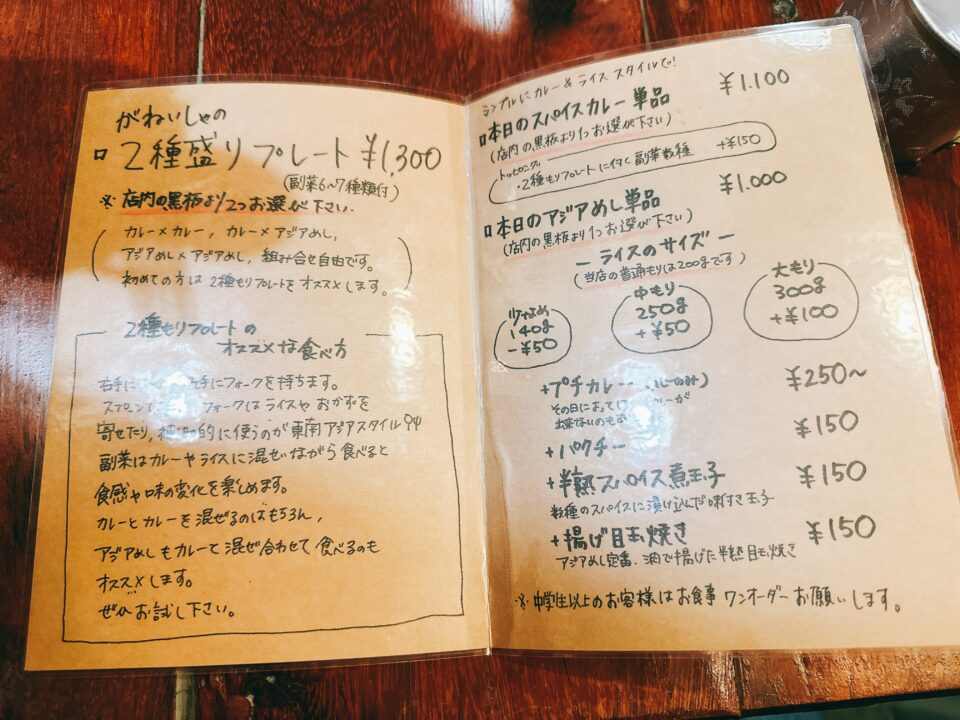 がねいしゃの
２種盛りプレート ¥1,300
(副菜6〜7種類付)
※ 店内の黒板より2つお選び下さい.
カレー×カレー, カレー×アジアめし,
アジアめし×アジアめし, 組み合せ自由です。
初めての方は 2種もりプレートを オススメ します。
2種もりプレートの
オススメな食べ方
右手に 手にフォークを持ちます。
スプーン フォークは ライスや おかずを
寄せたり, 的に使うのが 東南アジアスタイル
副菜はカレーやライスに混ぜながら食べると
食感や味の変化を楽しめます。
カレーとカレーを混ぜるのはもちろん,
アジアめしもカレーと混ぜ合わせて食べるのも
オススメします。
ぜひお試し下さい。
シンプルにカレー&ライス スタイルで!
本日のスパイスカレー単品 ¥1.100
(店内の黒板より1つお選び下さい)
トッピング
・2種もりプレートに付く副菜数種 +¥150
本日のアジアめし単品 ¥1.000
(店内の黒板より1つお選び下さい)
— ライスのサイズ —
(当店の普通もりは200gです)
少なめ
140g
-¥50
中もり
250g
+¥50
大もり
300g
+¥100
+プチカレー (ルーのみ) ¥250〜
その日によって
出来ないのも
+パクチー ¥150
+半熟スパイス煮玉子 ¥150
数種のスパイスに漬け込んだ味付き玉子
+揚げ目玉焼き ¥150
アジアめし定番. 油で揚げた半熟目玉焼き
※ 中学生以上のお客様はお食事 ワンオーダー お願いします。